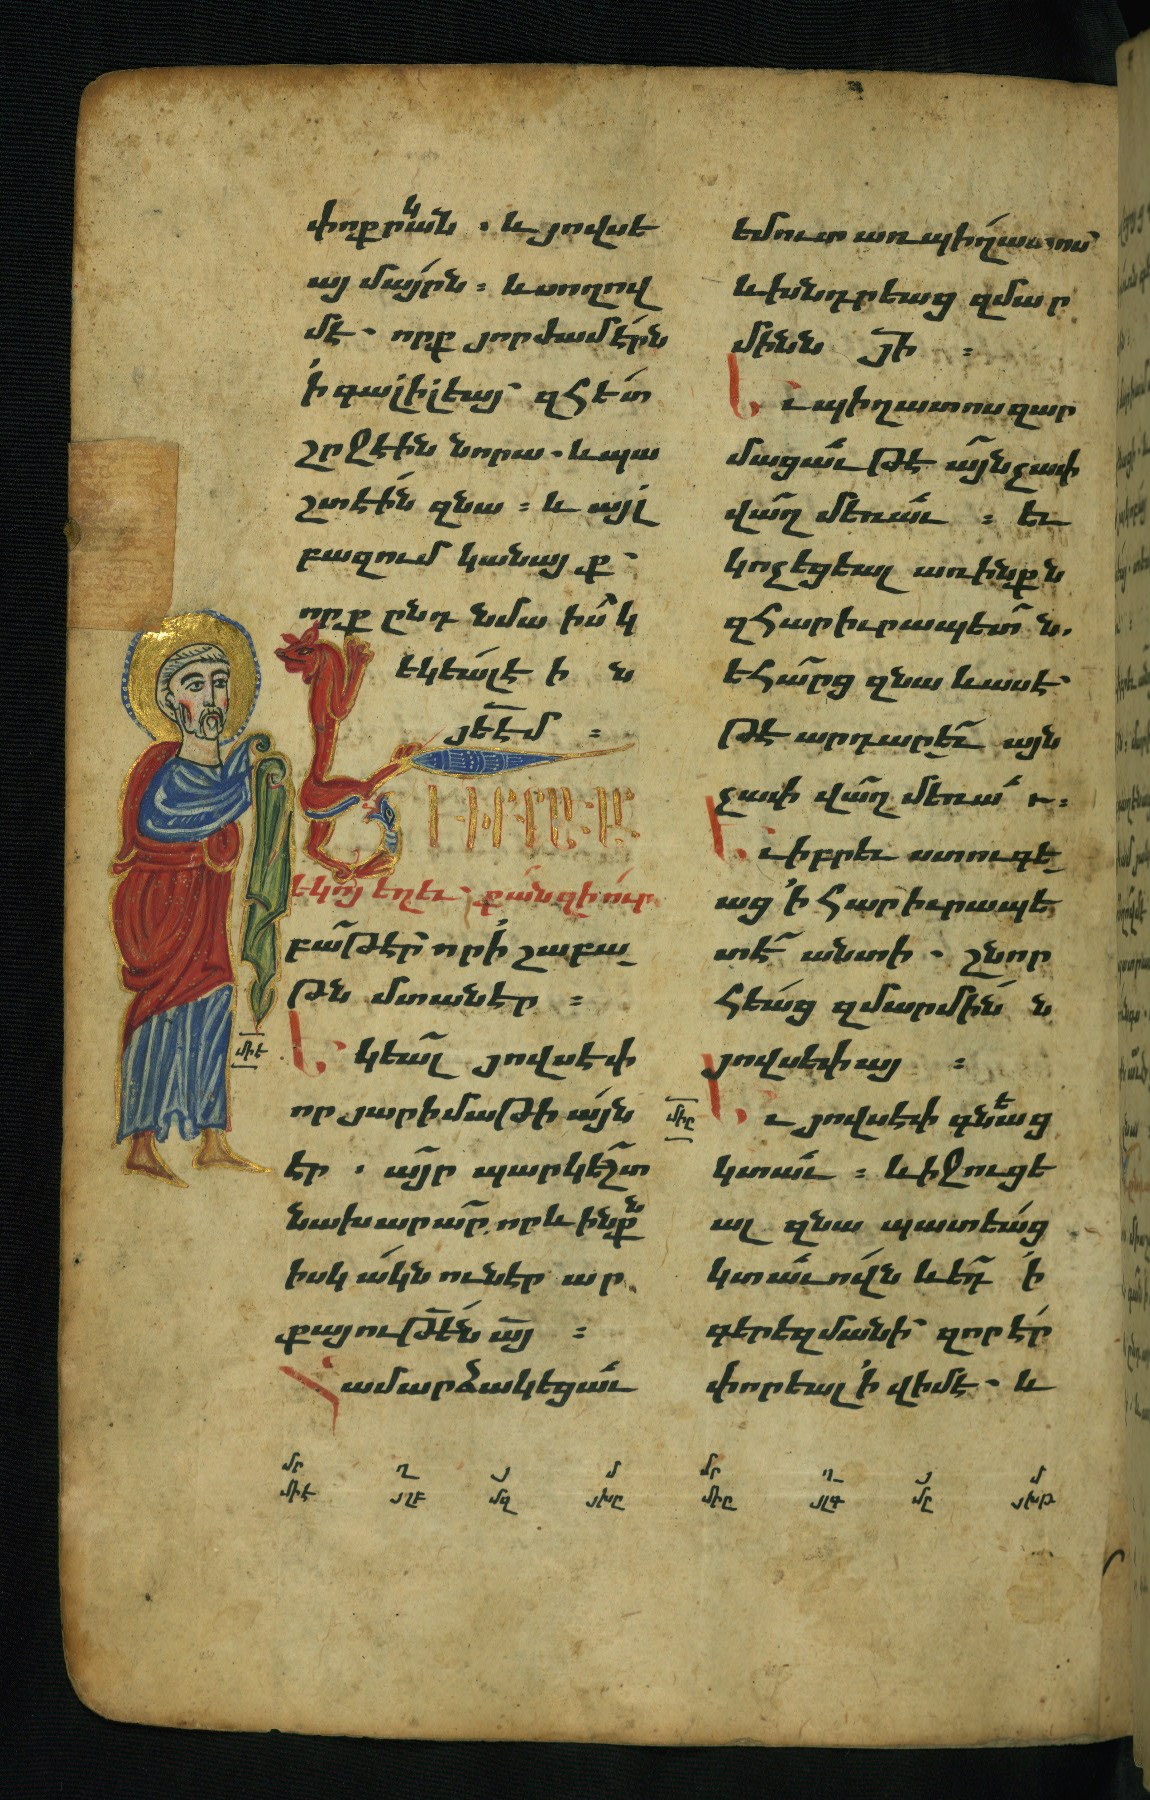 փոքրկան . և յովսե
այ մայրն : և սողով
մէ . որք յորժամ էրն
ի գալիլեայ զհետ
շրջէին նորա . և պա
շտէին զնա : և այլ
բազում կանայք
որք ընդ նմա իսկ
եկեալ է ի ն
յէէմ :
ԵՒ ԻԲՐԵՒ ԸՆԴ
երեկոյ եղեւ քանզի ուր
բաթ էր որ ի շաբա
թն մտանէր :
միէ
Եկեալ յովսէփ
որ յարիմաթիայն
էր . այր պարկեշտ
նախարար որ և ինքն
իսկ ակն ունէր ար
քայութեն այ :
Համարձակեցաւ
եմուտ առ պիղատոս
և խնդրեաց զմար
մինն յի :
Եւ պիղատոս զար
մացաւ թէ այնչափ
վաղ մեռաւ : եւ
կոչեցեալ առ ինքն
զհարիւրապետն .
եհարց զնա և ասէ
թէ արդարեւ այն
չափ վաղ մեռաւ :
Եւ իբրեւ ստուգե
աց ի հարիւրապե
տէ անտի . շնոր
հեաց զմարմինն
յովսեփայ :
միը
Եւ յովսէփ գնեաց
կտաւ : և իջուցե
ալ զնա պատեաց
կտաւովն և եդ ի
գերեզմանի զոր էր
փորեալ ի վիմէ . և
մր ղ յ մ
միէ յլբ մզ յխը
մր ղ յ մ
միը յլգ մը յխթ